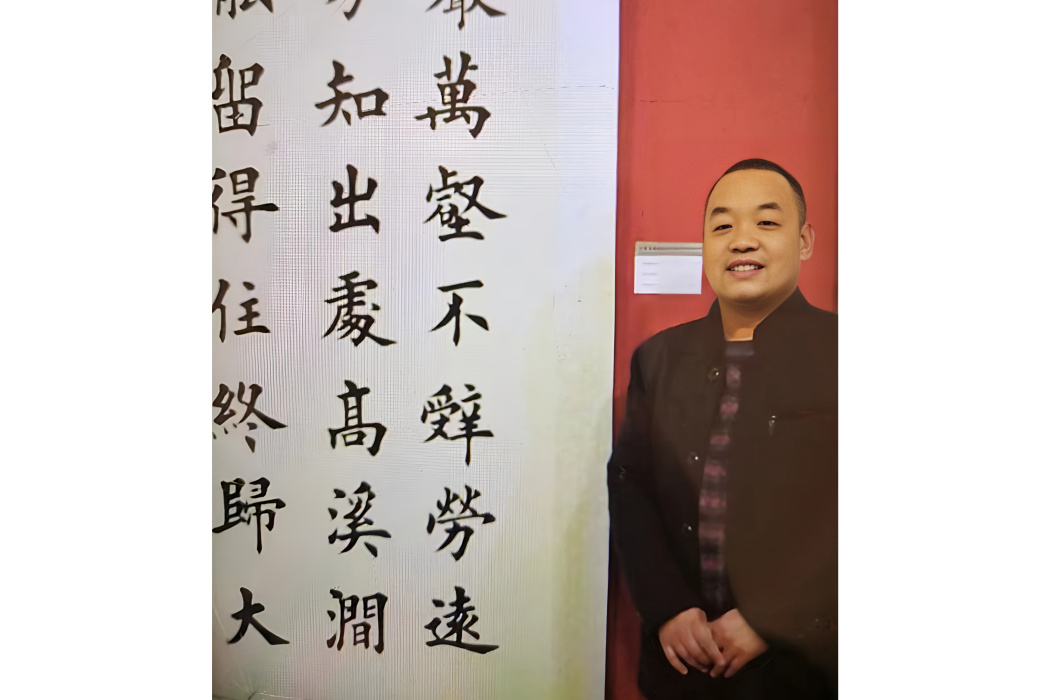 萬壑不辤勞遠
知出處髙溪澗
留得住終歸大